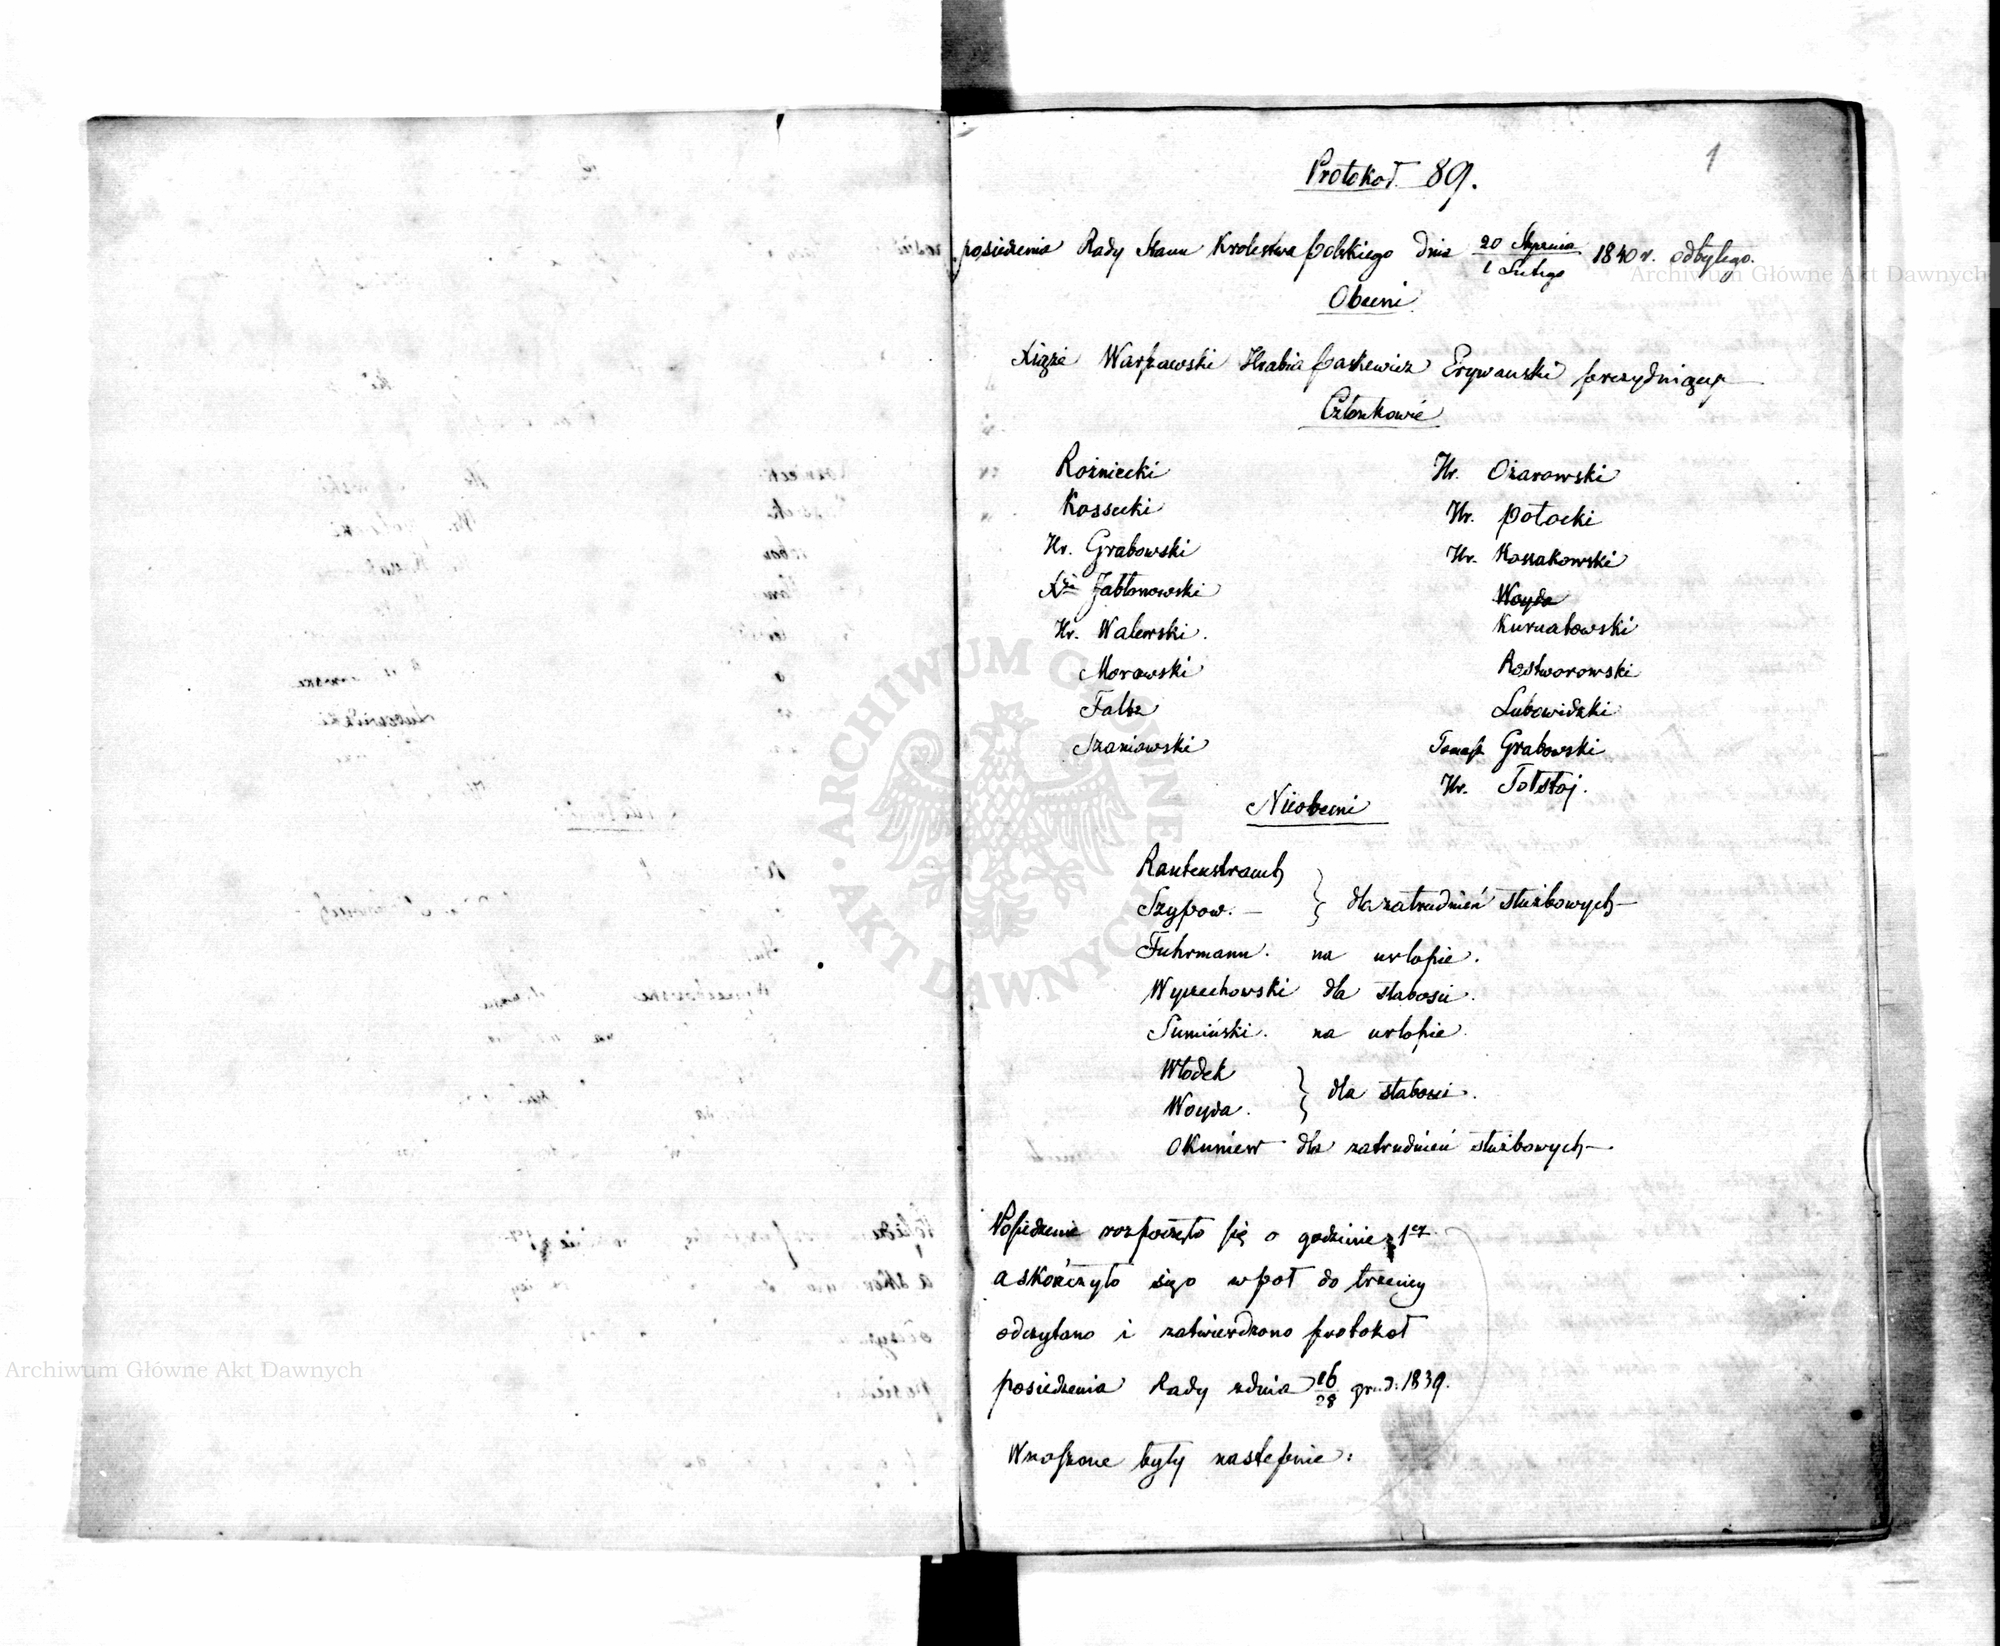 1
Protokoł 89.
posiedzenia Rady Stanu Krolestwa Polskiego dnia 20 Stycznia / 1 Lutego 1840 r. odbytego.
Obecni
Xiąże Warszawski Hrabia Paskewicz Erywański prezydniący
Członkowie
Rożniecki Hr. Ożarowski
Kossecki Hr. Potocki
Hr. Grabowski Hr. Kossakowski
Xże Jabłonowski Woyda
Hr. Walewski. Kurnatowski
Morawski Rostworowski
Faltz Lubowidzki
Szaniowski Tomasz Grabowski
Hr. Tołstoj.
Nieobecni
Rautenstrauch
Szypow. — } dla zatrudnień służbowych —
Fuhrmann. na urlopie.
Wyczechowski dla słabości.
Sumiński. na urlopie.
Włodek
Woyda. } dla słabości.
Okuniew dla zatrudnień służbowych —
Posiedzenie rozpoczęło się o godzinie 1ej
a skończyło o wpoł do trzeciey
odczytano i zatwierdzono protokoł
posiedzenia Rady zdnia 16/28 grud: 1839.
Wnoszone były następnie:
Archiwum Główne Akt Dawnych
Archiwum Główne Akt Dawnych
ARCHIWUM GŁÓWNE AKT DAWNYCH